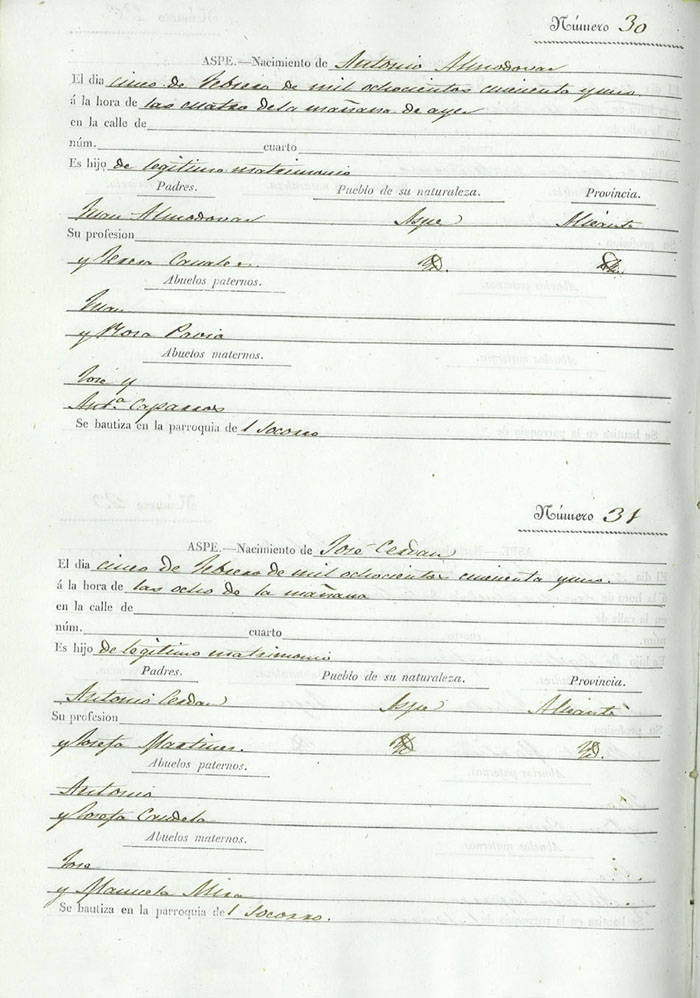 Número 30
ASPE.—Nacimiento de Antonio Almodovar
El dia cinco de Febrero de mil ochocientos cincuenta y uno
á la hora de las cuatro de la mañana de ayer
en la calle de
núm. cuarto
Es hijo de legitimo matrimonio
Padres. Pueblo de su naturaleza. Provincia.
Juan Almodovar Aspe Alicante
Su profesion
y Teresa
Abuelos paternos.
Juan
y Rosa Pavia
Abuelos maternos.
José y
Antª Caparros
Se bautiza en la parroquia de l Socorro
Número 31
ASPE.—Nacimiento de José Cerdan
El dia cinco de Febrero de mil ochocientos cincuenta y uno.
á la hora de las ocho de la mañana
en la calle de
núm. cuarto
Es hijo de legitimo matrimonio
Padres. Pueblo de su naturaleza. Provincia.
Antonio Cerdan Aspe Alicante
Su profesion
y Josefa Martinez.
Abuelos paternos.
Antonio
y Josefa Candela
Abuelos maternos.
Jose
y Manuela Mira
Se bautiza en la parroquia de l Socorro.